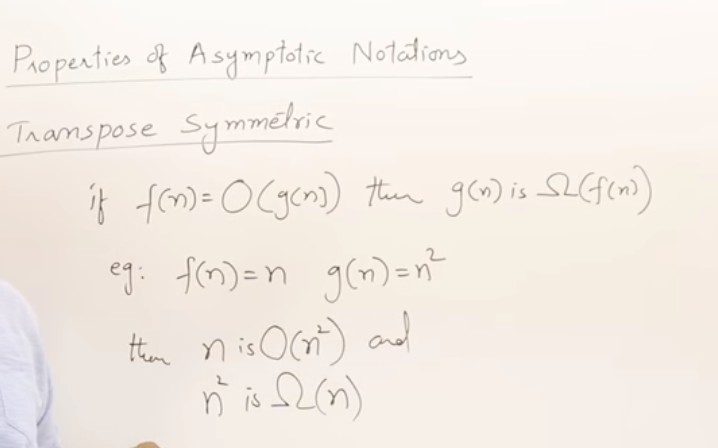 Properties of Asymptotic Notations
Transpose Symmetric
if f(n) = O(g(n)) then g(n) is Ω(f(n))
eg: f(n) = n g(n) = n²
then n is O(n²) and
n² is Ω(n)